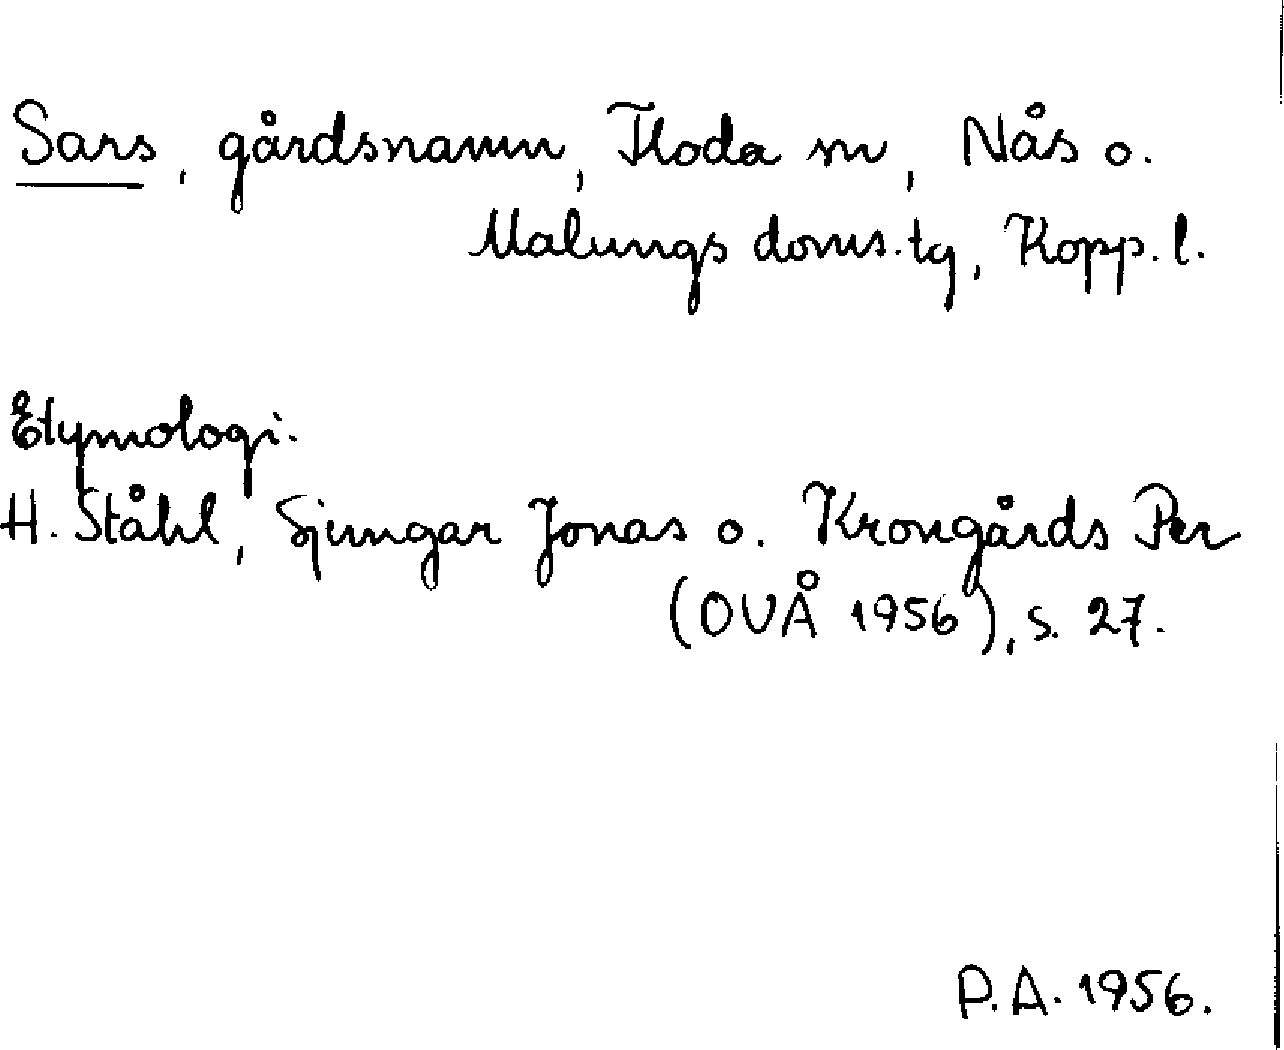 Sars, gårdsnamn, Floda sn, Nås o.
Malungs doms.tg, Kopp. l.
Etymologi.
H. Ståhl, Sjungar Jonas o. Krongårds Per
(OUÅ 1956), s. 27.
P.A. 1956.